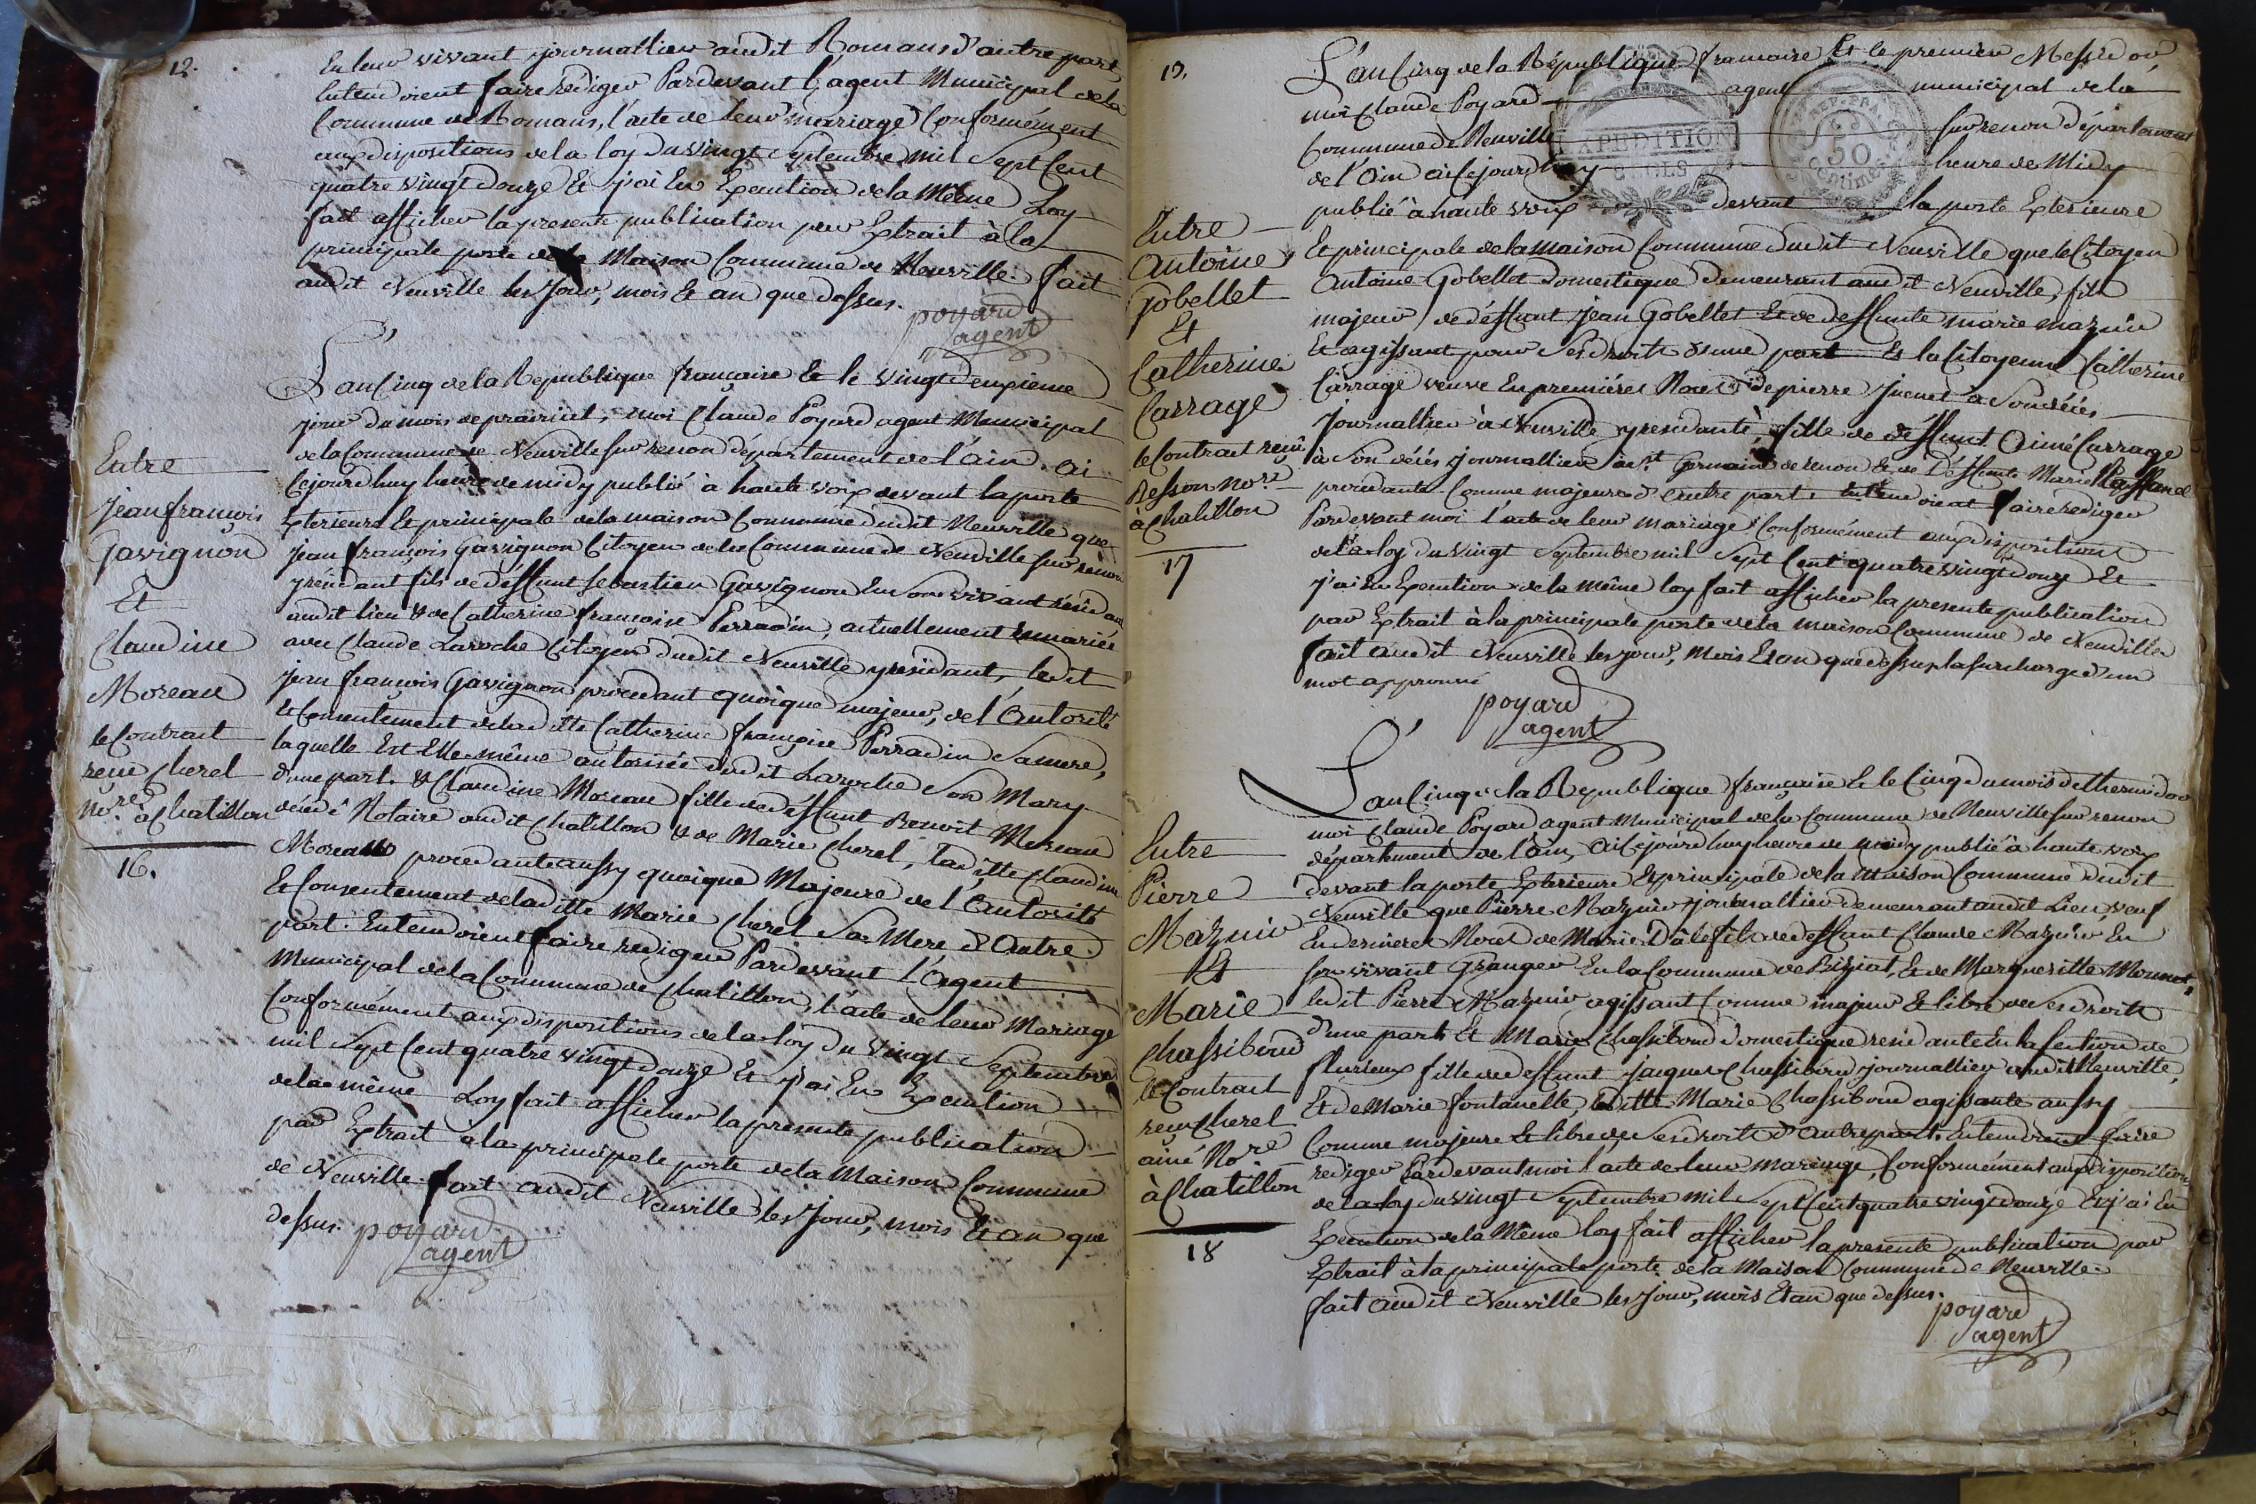 12.
En leur vivant journallier audit Romans d'autre part
Entendoient faire rédiger Pardevant l'agent Municipal dela
Commune de Romans, l'acte de leur mariage Conformément
aux dispositions dela loy du vingt Septembre mil Sept Cent
quatre vingt douze Et j'ai En Execution dela Même Loy
fait afficher la presente publication par Extrait à la
principale porte de la Maison Commune de Neuville. fait
audit Neuville les Jour, mois Et an que dessus.
poyard
agent
L'an Cinq dela Republique française Et le vingt deuxieme
jour du mois de prairial, moi Claude Poyard agent Municipal
dela Commune de Neuville sur renon département de l'Ain. ai
Cejourd'huy heure de midy publié à haute voix devant la porte
Exterieure Et principale dela maison Commune dudit Neuville que
Jean françois Gavignon Citoyen dela Commune de Neuville sur renon
y résidant fils de déffunt Sebastien Gavignon En son vivant résidant
audit lieu & de Catherine françoise Perradin, actuellement remariée
avec Claude Laroche Citoyen dudit Neuville y résidant, ledit
jean françois Gavignon procedant quoique majeur, de l'Autorité
Et Consentement de ladite Catherine françoise Perradin Samere,
laquelle Est Elle même autorisée dudit Laroche Son Mary
d'une part. & Claudine Moreau fille de déffunt Benoit Moreau
décédé Notaire audit Chatillon & de Marie Cherel, ladite Claudine
Moreau procedante aussy quoique Majeure de l'Autorité
Et Consentement deladitte Marie Cherel Sa Mere d'Autre
part. Entendoient faire rediger Pardevant L'Agent
Municipal dela Commune de Chatillon, l'acte de leur Mariage
Conformément aux dispositions de la loy du Vingt Septembre
mil Sept Cent quatre vingt douze Et j'ai En Execution
dela même Loy fait afficher la presente publication
par Extrait à la principale porte dela Maison Commune
de Neuville fait audit Neuville les Jour, mois Et an que
dessus. poyard
agent
Entre
Jean françois
Gavignon
Et
Claudine
Moreau
le Contrat
reçu Cherel
No.re à Chatillon
16.
13.
L'an Cinq de la République francaise Et le premier Messidor
moi Claude Poyard agent municipal de la
Commune de Neuville sur renon département
de l'Ain ai Cejourd'huy heure de Midy
publié à haute voix devant la porte Exterieure
Et principale dela maison Commune dudit Neuville que le Citoyen
Antoine Gobellet domestique demeurant audit Neuville, fils
majeur de déffunt Jean Gobellet Et de deffunte marie mazuir
Et agissant pour Ses droits d'une part Et la Citoyenne Catherine
Carrage veuve En premières Noces de pierre Juenet à Son décès
Journallier à Neuville y residante, fille de déffunt Aimé Carrage
à Son décès journallier à St. Germain de renon & de Déffunte Marie
procedante Comme majeure d'autre part. Entendoient faire rediger
Pardevant moi l'acte de leur mariage Conformément aux dispositions
de la loy du vingt Septembre mil Sept Cent quatre vingt douze Et
j'ai En Execution dela même loy fait afficher la presente publication
par Extrait à la principale porte de la maison Commune de Neuville
fait audit Neuville les jour, Mois Et an que dessus la surcharge d'un
mot approuvé
poyard
agent
EXPEDITION
50
Centimes
Entre
Antoine
Gobellet
Et
Catherine
Carrage
le Contrat reçu
Besson no.re
à Chatillon
17
L'an Cinq de la Republique française Et le Cinq du mois de thermidor
moi Claude Poyard, agent Municipal dela Commune de Neuville sur renon
département de l'ain, ai Cejourd'huy heure de midy publié à haute voix
devant la porte Exterieure Et principale de la Maison Commune dudit
Neuville que Pierre Mazuir journallier demeurant audit Lieu, veuf
En dernieres Noces de Marie Dâle fils de deffunt Claude Mazuir En
son vivant Granger En la Commune de Biziat, Et de Marguerite
ledit Pierre Mazuir agissant Comme majeur Et libre de Ses droits
d'une part Et Marie Chassiboud domestique residante En la section de
flurieux fille de deffunt jacques Chassiboud journallier audit Neuville,
Et de Marie fontanelle, ladite Marie Chassiboud agissante aussy
Comme majeure Et libre de Ses droits d'autre part. Entendoient faire
rediger Pardevant moi l'acte de leur mariage, Conformément aux dispositions
de la loy du vingt Septembre mil Sept Cent quatre vingt douze Et j'ai En
Execution de la Même loy fait afficher la presente publication par
Extrait à la principale porte de la Maison Commune de Neuville
fait audit Neuville les Jour, mois Et an que dessus.
poyard
agent
Entre
Pierre
Mazuir
Et
Marie
Chassiboud
le Contrat
reçu Cherel
ainé No.re
à Chatillon
18